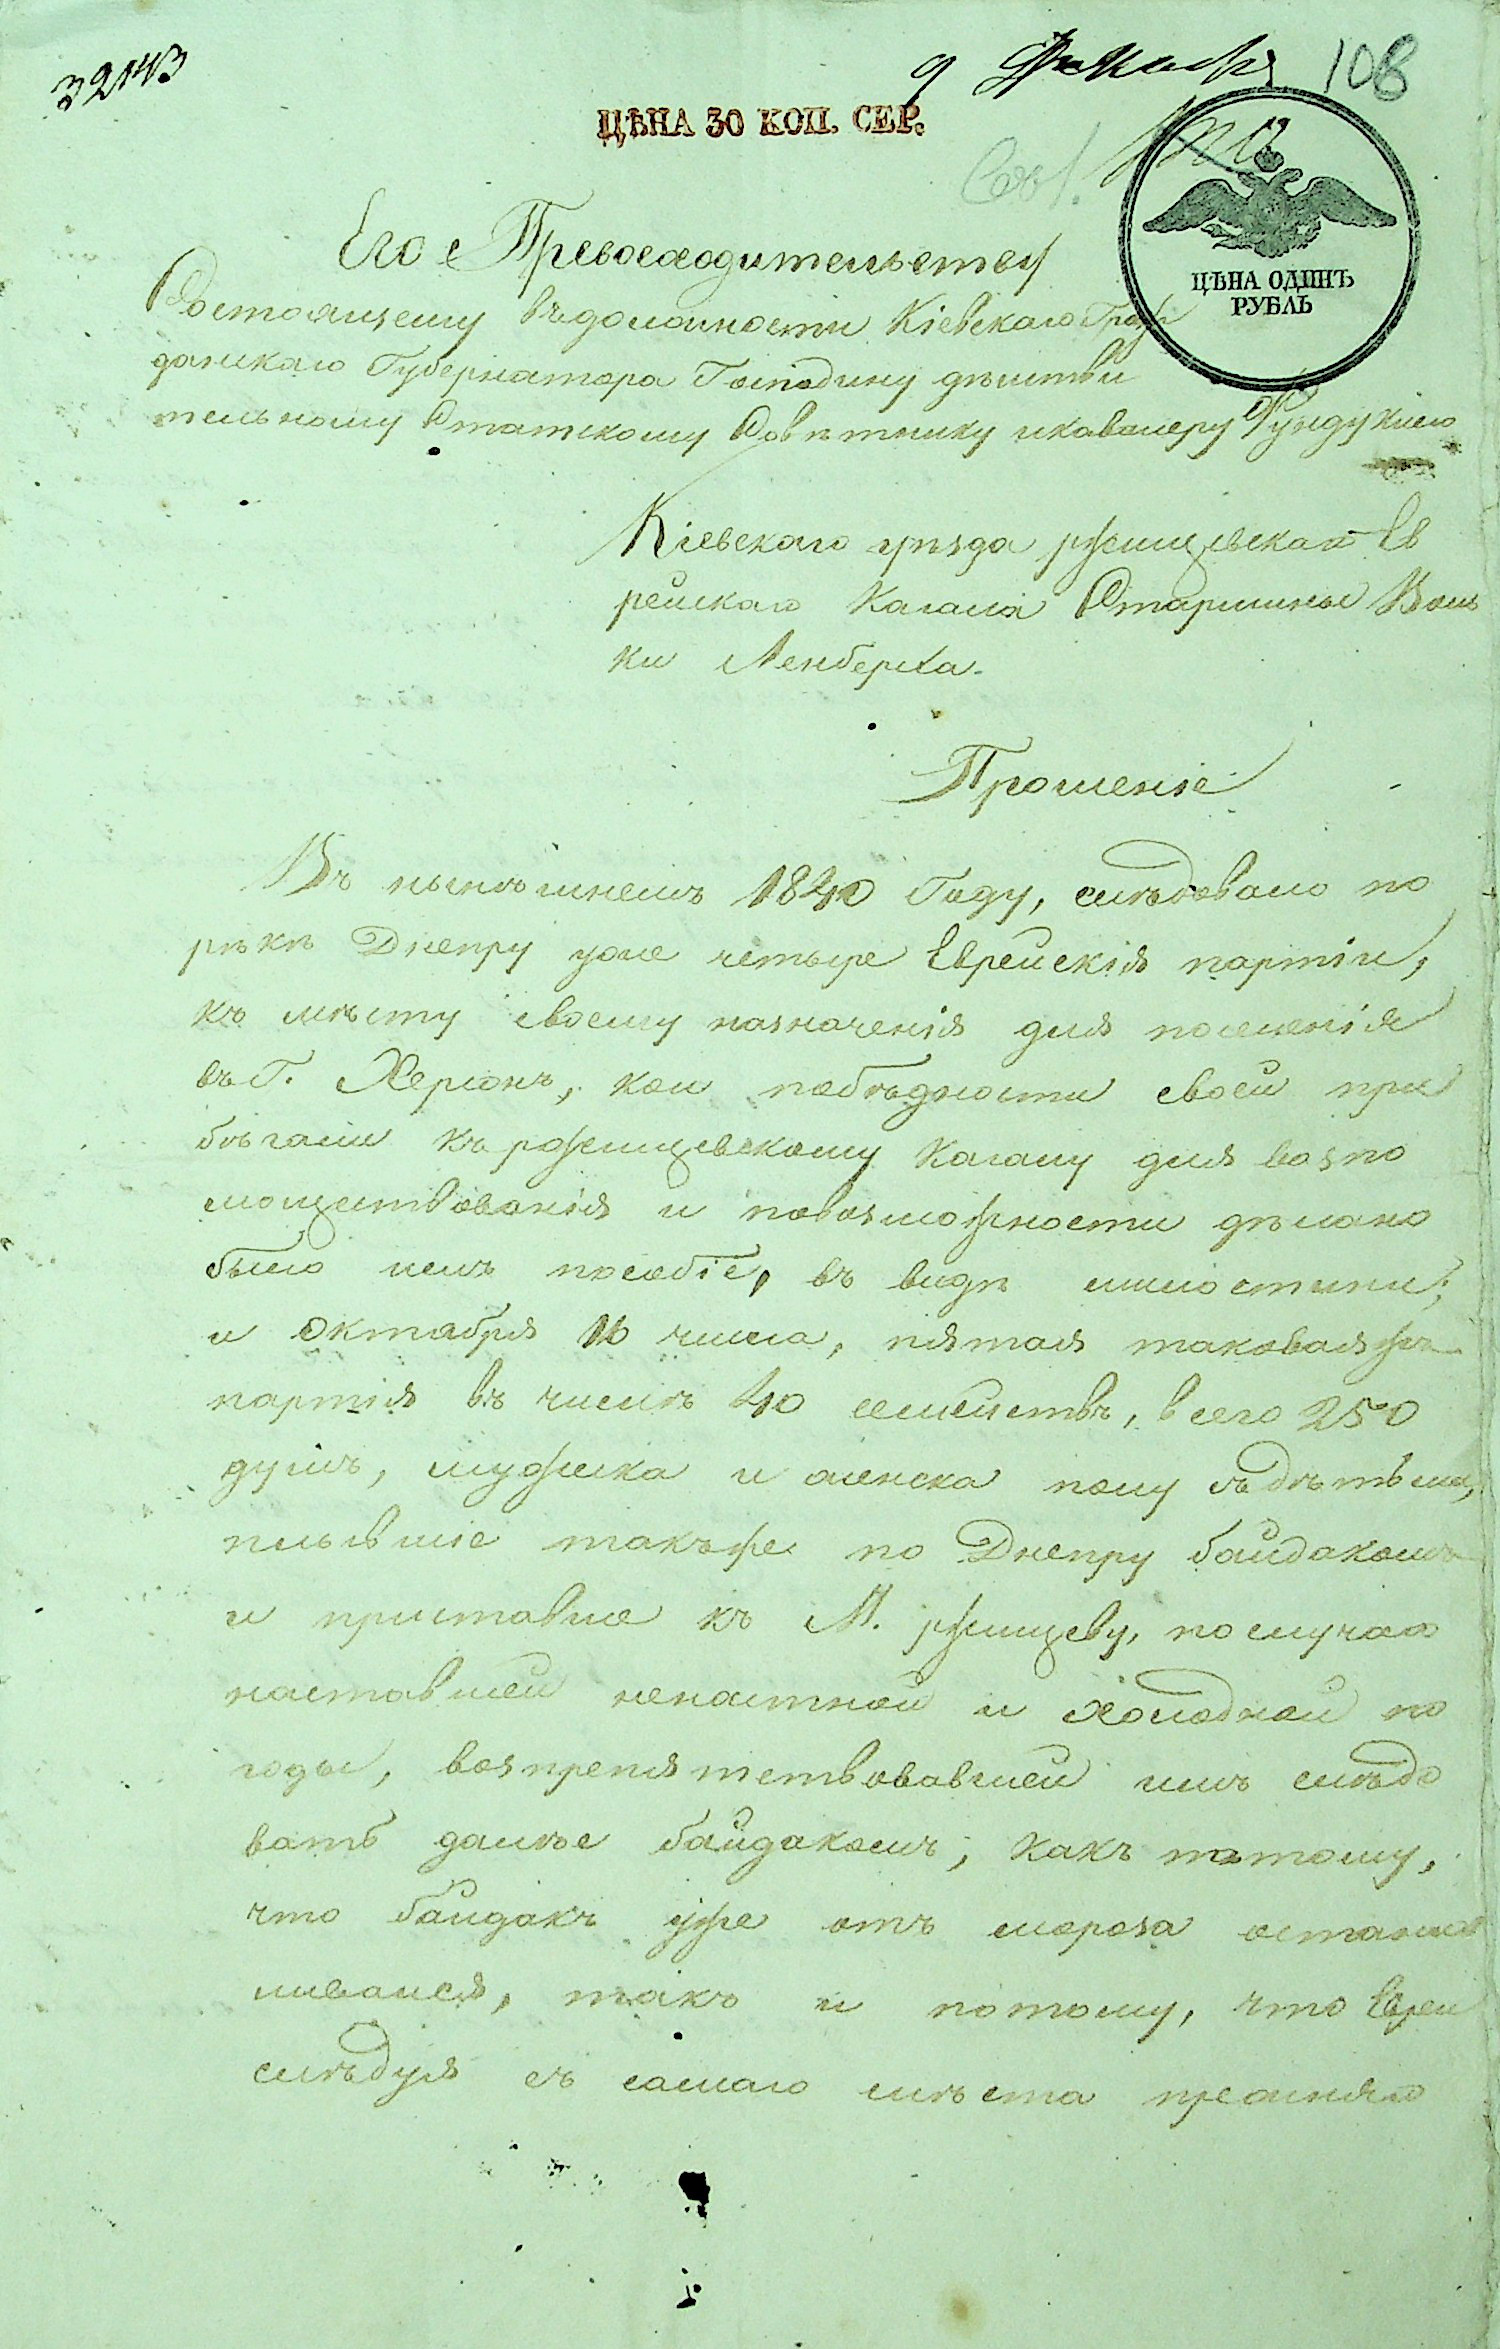 32143
9 Декабря 108
ЦѢНА 30 КОП. СЕР.
ЦѢНА ОДИНЪ
РУБЛЬ
Его Превосходительству
Состоящему въ должности Кіевскаго Граж
данскаго Губернатора Господину дѣистви
тельному Статскому Совѣтнику и кавалеру Фундуклею
Кіевскаго уѣзда ржищевскаго Ев
рейскаго Кагала Старшины Вольки
Ленберга.
Прошеніе
Въ нынѣшнемъ 1840 Году, слѣдовало по
рѣкѣ Днепру уже четыре Еврейскія партіи,
къ мѣсту своему назначенія для поселенія
въ Г. Херсонъ, кои побѣдности своей при
бѣгали къ ржищевскому Кагалу для возпо
моществованія и повозможности дѣлано
было имъ пособіе, въ видѣ милостыни;
и Октября 16 числа, пятая таковаяжъ
партія въ числѣ 40 семействъ, всего 250
душъ, мужска и женска полу съ дѣтьми,
плывшіе такъже по Днепру байдакомъ
и приставше къ М. ржищеву, по случаю
наставшей ненастной и холодной по
годы, возпрепятствовавшей имъ слѣдо
вать далѣе байдакомъ, какъ потому,
что байдакъ уже отъ мороза остано
вливался, такъ и потому, что Евреи
слѣдуя съ самаго мѣста прежняго